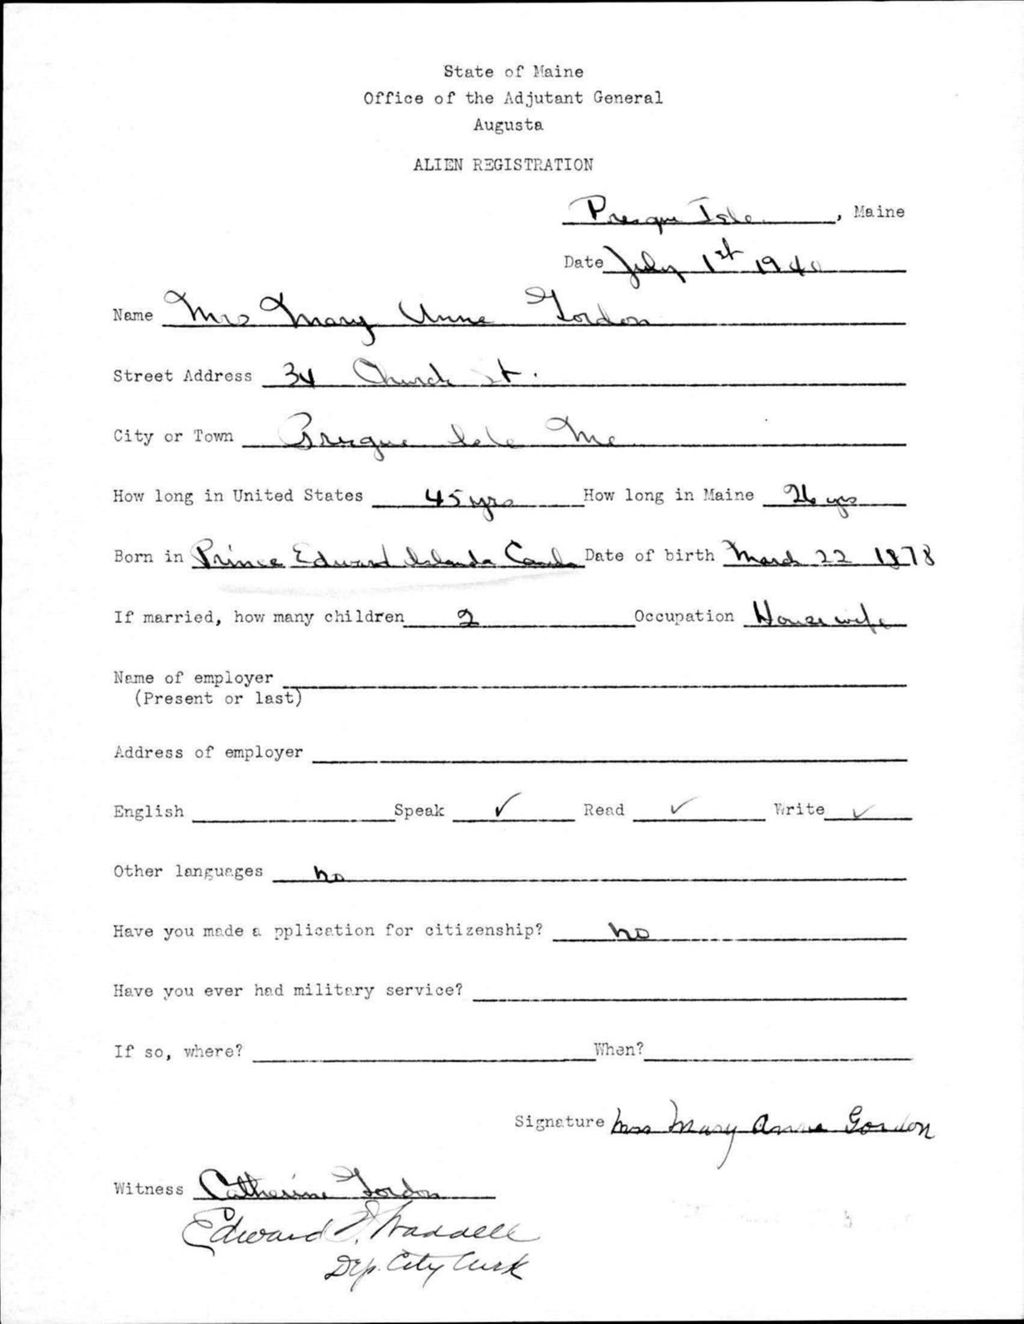 State of Maine
Office of the Adjutant General
Augusta
ALIEN REGISTRATION
Presque Isle, Maine
Date July 1st 1940
Name Mrs Mary Anne Gordon
Street Address 34 Church St.
City or Town Presque Isle Me
How long in United States 45 yrs How long in Maine 26 yrs
Born in Prince Edward Islands Canda Date of birth March 22 1878
If married, how many children 2 Occupation Housewife
Name of employer
(Present or last)
Address of employer
English Speak ✓ Read ✓ Write ✓
Other languages no
Have you made a pplication for citizenship? no
Have you ever had military service?
If so, where? When?
Signature Mrs Mary Anne Gordon
Witness Catherine Gordon
Edward Waddell
Dep. City Clerk